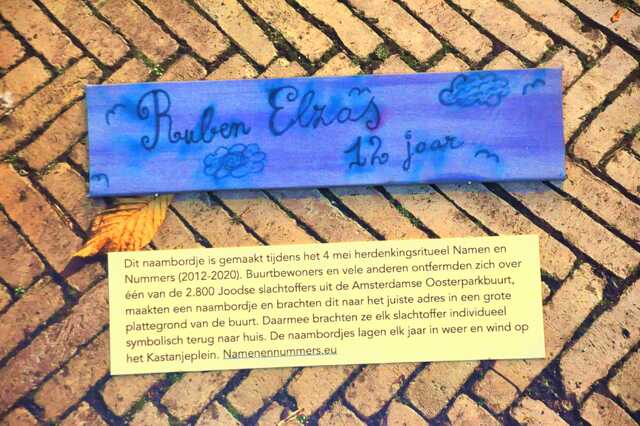 Ruben Elzas
12 jaar
Dit naambordje is gemaakt tijdens het 4 mei herdenkingsritueel Namen en
Nummers (2012-2020). Buurtbewoners en vele anderen ontfermden zich over
één van de 2.800 Joodse slachtoffers uit de Amsterdamse Oosterparkbuurt,
maakten een naambordje en brachten dit naar het juiste adres in een grote
plattegrond van de buurt. Daarmee brachten ze elk slachtoffer individueel
symbolisch terug naar huis. De naambordjes lagen elk jaar in weer en wind op
het Kastanjeplein. Namenennummers.eu